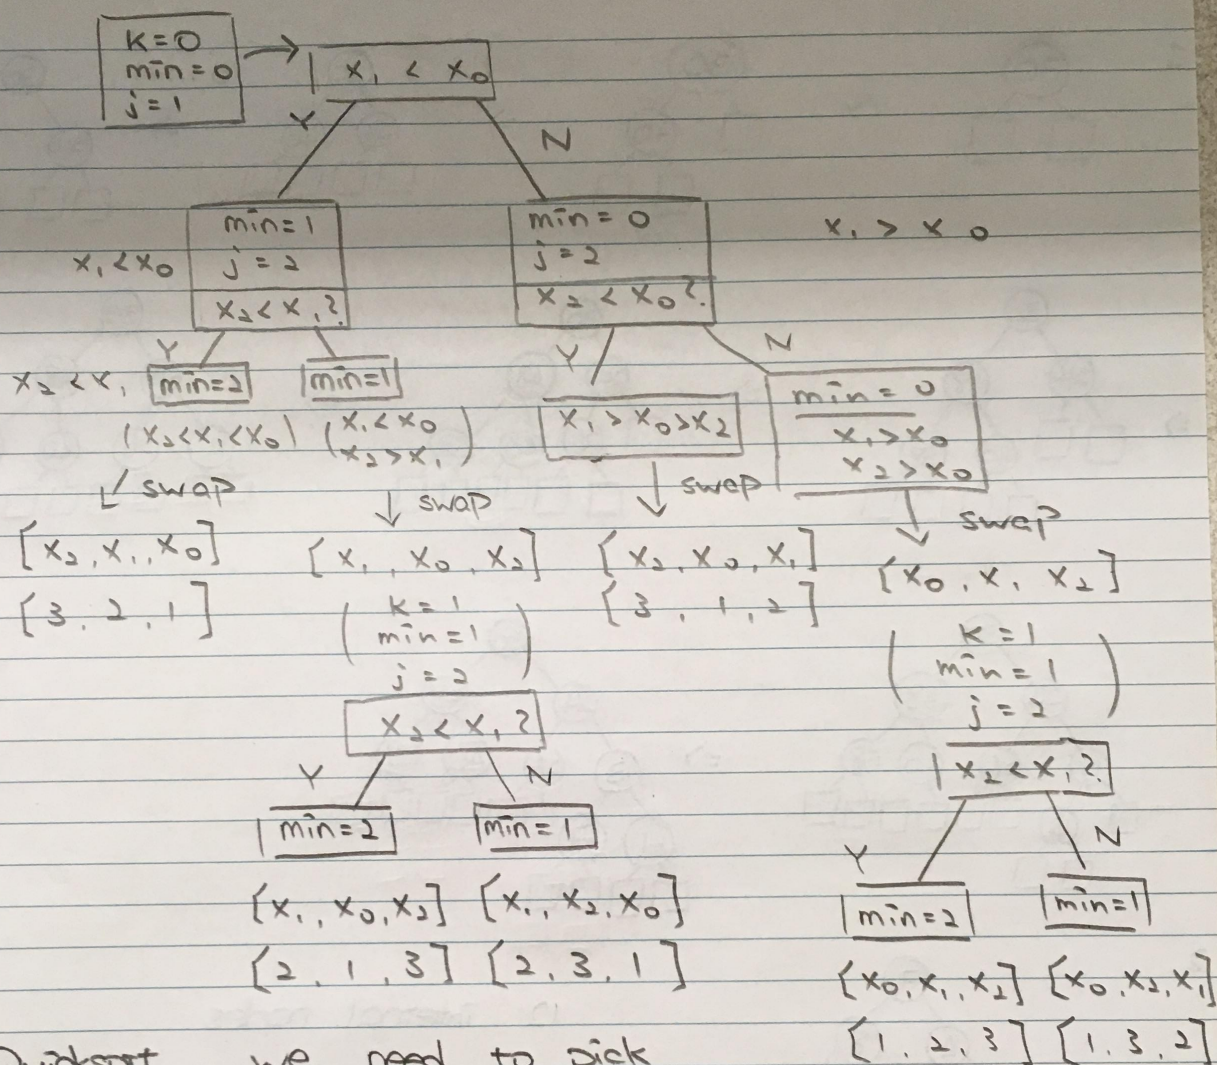 k=0
min=0
j=1
x₁ < x₀
Y
N
min=1
j=2
x₂<x₁?
x₁<x₀
min=0
j=2
x₂<x₀?
x₁>x₀
Y
x₂<x₁
min=2
min=1
Y
N
(x₂<x₁<x₀)
(x₁<x₀
x₂>x₁)
x₁>x₀>x₂
min=0
x₁>x₀
x₂>x₀
swap
swap
swap
swap
[x₂,x₁,x₀]
[3,2,1]
[x₁,x₀,x₂]
(k=1
min=1
j=2)
[x₂,x₀,x₁]
[3,1,2]
[x₀,x₁ x₂]
(k=1
min=1
j=2)
x₂<x₁?
Y
N
min=2
min=1
[x₁,x₀,x₂]
[x₁,x₂,x₀]
[2,1,3]
[2,3,1]
x₂<x₁?
Y
N
min=2
min=1
[x₀,x₁,x₂]
[x₀,x₂,x₁]
[1,2,3]
[1,3,2]
we need to pick